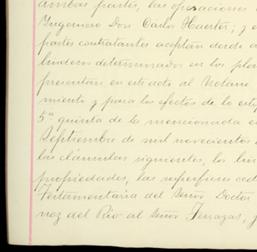 ambas partes, las operaciones
Ingeniero Don Carlos Huerter; y e
partes contratantes aceptan desde a
linderos determinados en los plan
presentan en este acto al Notario
miento y para los efectos de la esti
5ª quinta de la mencionada es
Septiembre de mil novecientos
las cláusulas siguientes, los lin
propiedades, las superficies ced
Testamentaría del Señor Doctor
roz del Río al Señor Terrazas, y